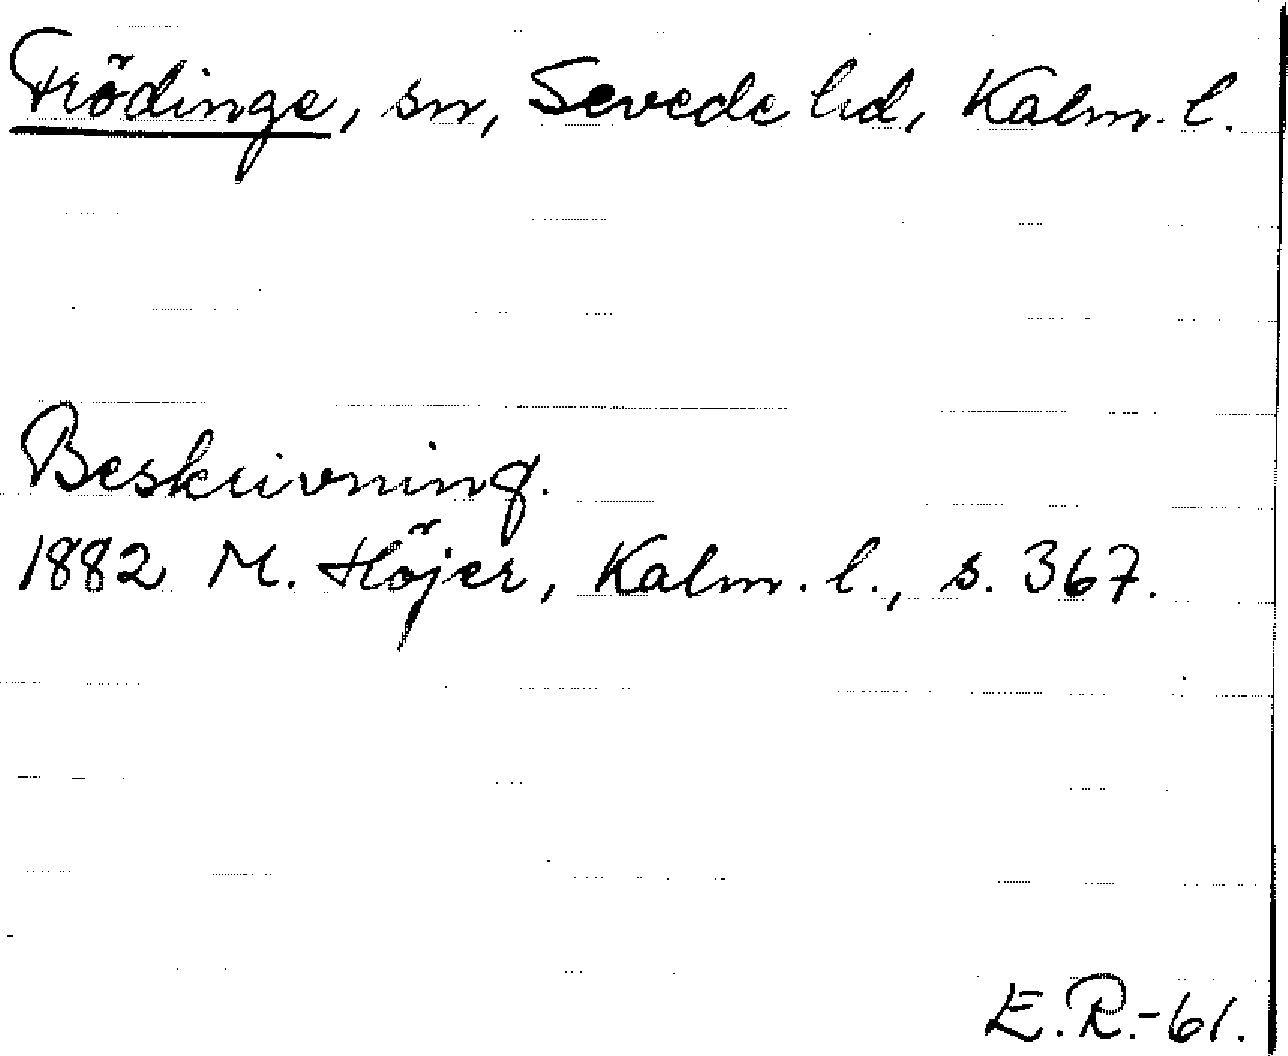 Frödinge, sn, Sevede hd, Kalm. l.
Beskrivning.
1882 M. Höjer, Kalm. l., s. 367.
E.R.-61.